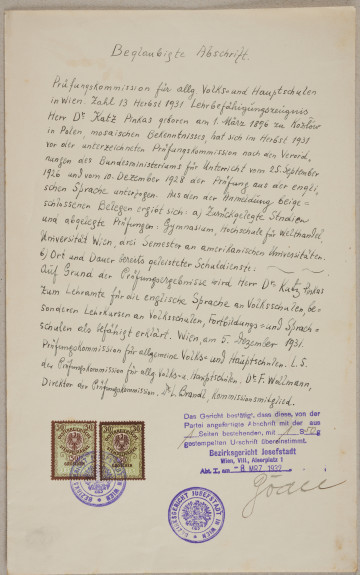 Beglaubigte Abschrift.
Prüfungskommission für allg. Volks=und Hauptschulen
in Wien. Zahl 13 Herbst 1931. Lehrbefähigungszeugnis
Herr Dr Katz Pinkas geboren am 1. März 1896 zu Kozłów
in Polen, mosaischen Bekenntnisses, hat sich im Herbst 1931
vor der unterzeichneten Prüfungskommission nach den Verord=
nungen des Bundesministeriums für Unterricht vom 25. September
1926 und vom 10. Dezember 1928 der Prüfung aus der engli=
schen Sprache unterzogen. Aus den der Anmeldung beige=
schlossenen Belegen ergibt sich: a) Zurückgelegte Studien
und abgelegte Prüfungen: Gymnasium, Hochschule für Welthandel
Universität Wien, drei Semester an amerikanischen Universitäten.
b) Ort und Dauer bereits geleisteter Schuldienste:
Auf Grund der Prüfungsergebnisse wird Herr Dr. Katz Pinkas
zum Lehramte für die englische Sprache an Volksschulen, be=
sonderen Lehrkursen an Volksschulen, Fortbildungs=und Sprach=
schulen als befähigt erklärt. Wien, am 5. Dezember 1931.
Prüfungskommission für allgemeine Volks= und Hauptschulen. L.S.
der Prüfungskommission für allg Volks=u. Hauptschulen. Dr. F. Wollmann,
Direktor der Prüfungskommission. Dr. L. Brandl, Kommissionsmitglied.
Das Gericht bestätigt, dass diese, von der
Partei angefertigte Abschrift mit der aus
1 Seiten bestehenden, mit 1 S 50 g
gestempelten Urschrift übereinstimmt.
Bezirksgericht Josefstadt
Wien, VIII., Alserplatz 1
Abt. I, am -8. MRZ. 1932
30 30
BEZIRKSGERICHT JOSEFSTADT IN WIEN